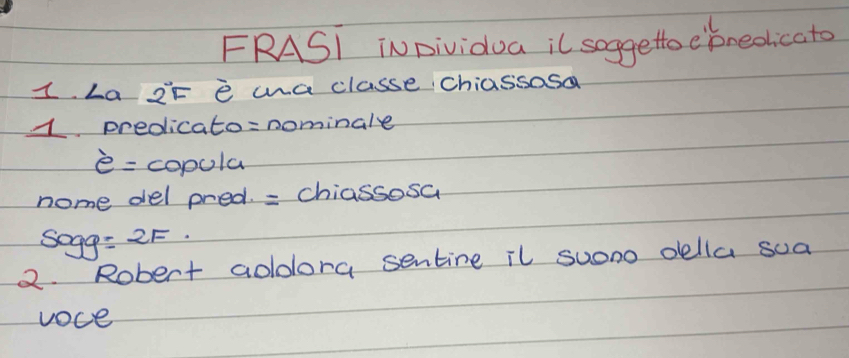 FRASI INDividua il soggetto e il predicato
1. La 2°F è una classe chiassosa
1. predicato = nominale
è = copula
nome del pred. = chiassosa
sogg = 2F.
2. Robert adora sentire il suono della sua
voce